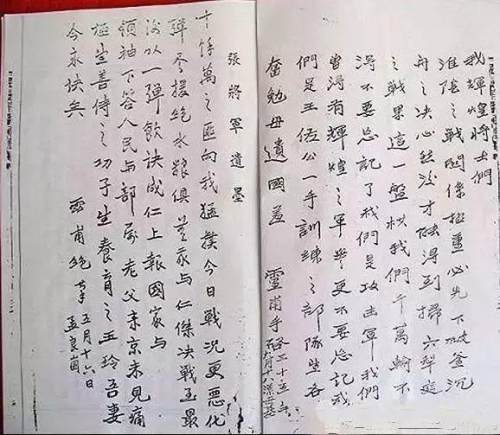 我輝煌將士們
淮陰之戰関係極重必先下破釜沉
舟之决心然後才能得到掃穴犁庭
之戰果這一盤棋我們千萬輸不
得不要忘記了我們是攻擊軍我們
當得有輝煌之軍譽更不要忘記我
們是王佐公一手訓練之部隊望各
奮勉毋遺國羞 靈甫手啓 三十五年
張將軍遺墨
十餘萬之匪向我猛撲今日戰况更惡化
彈盡援絕水粮俱無我與仁傑决戰至最
後以一彈飲訣成仁上報國家與
領袖下答人民與部屬老父來京未見痛
極望善待之幼子望養育之玉玲吾妻
今永訣矣
靈甫絕筆 五月十六日
孟良崮